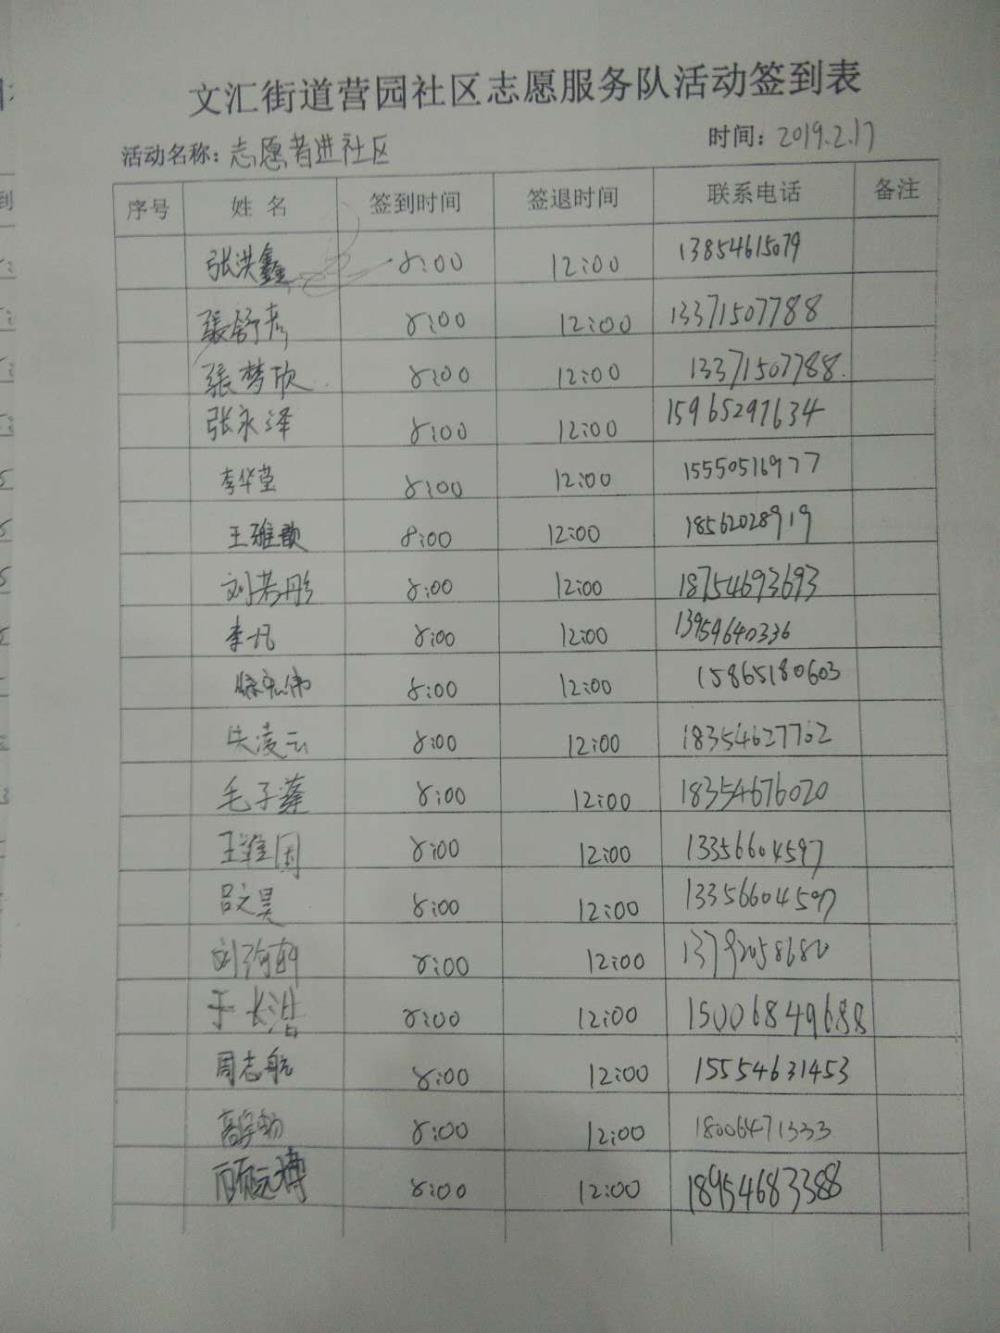 文汇街道营园社区志愿服务队活动签到表
活动名称：志愿者进社区 时间：2019.2.17
序号 姓名 签到时间 签退时间 联系电话 备注
张洪鑫 8:00 12:00 13854615079
張舒彦 8:00 12:00 13371507788
張梦欣 8:00 12:00 13371507788.
张永泽 8:00 12:00 15965297634
李华堂 8:00 12:00 15550516977
王雅歆 8:00 12:00 18562028919
刘若彤 8:00 12:00 18754693693
李凡 8:00 12:00 13959640336
8:00 12:00 15865180603
凌云 8:00 12:00 18354627702
毛子蓬 8:00 12:00 18354676020
王维国 8:00 12:00 13356604597
吕文昊 8:00 12:00 13356604597
刘 8:00 12:00 13792058680
于长浩 8:00 12:00 15006849688
周志航 8:00 12:00 15554631453
高 8:00 12:00 18006471333
8:00 12:00 18954683388